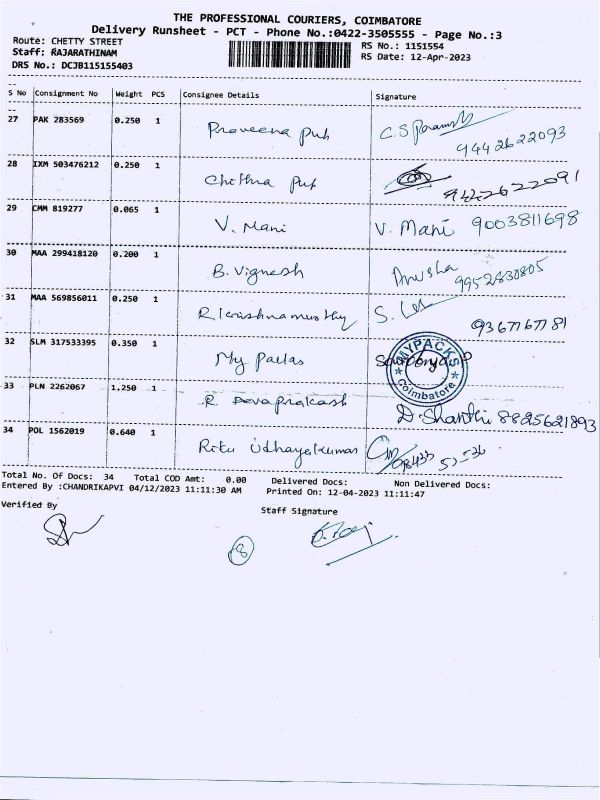 THE PROFESSIONAL COURIERS, COIMBATORE
Delivery Runsheet - PCT - Phone No.:0422-3505555 - Page No.:3
Route: CHETTY STREET RS No.: 1151554
Staff: RAJARATHINAM RS Date: 12-Apr-2023
DRS No.: DCJB115155403
S No Consignment No Weight PCS Consignee Details Signature
27 PAK 283569 0.250 1 Praveena Pub
9442622093
28 IXM 503476212 0.250 1 Chithra Pub 9442622091
29 CMM 819277 0.065 1 V. Mani V. Mani 9003811698
30 MAA 299418120 0.200 1 B. Vignesh Anusha
9952830805
31 MAA 569856011 0.250 1 R Krishnamurthy S.
9367767781
32 SLM 317533395 0.350 1 My Packs
MYPACKS
Coimbatore
33 PLN 2262067 1.250 1 R Devaprakash D. Shanthi 8825621893
34 POL 1562019 0.640 1 Ritu Udhayakumar
Total No. Of Docs: 34 Total COD Amt: 0.00 Delivered Docs: Non Delivered Docs:
Entered By :CHANDRIKAPVI 04/12/2023 11:11:30 AM Printed On: 12-04-2023 11:11:47
Verified By Staff Signature
8